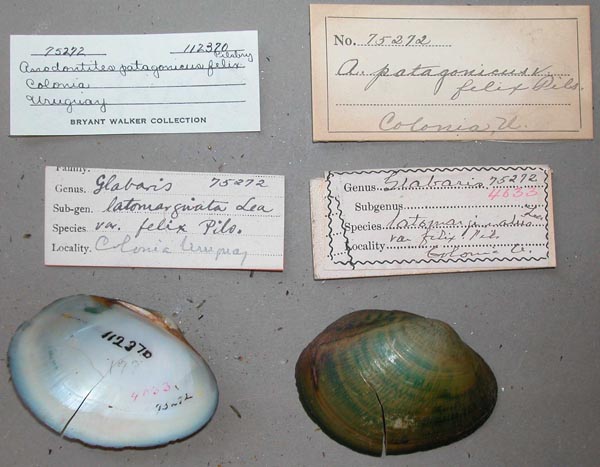 75272 112370
Pilsbry
Anodontites patagonicus felix
Colonia
Uruguay
BRYANT WALKER COLLECTION
No. 75272
A. patagonicus v.
felix Pils.
Colonia U.
Family
Genus. Glabaris 75272
Sub-gen. latomarginata Lea
Species var. felix Pils.
Locality. Colonia Uruguay
Genus Glabaris 75272
4633
Subgenus
Species latomarginata Lea
var. felix Pils.
Locality Colonia U.
112370
4633
75272